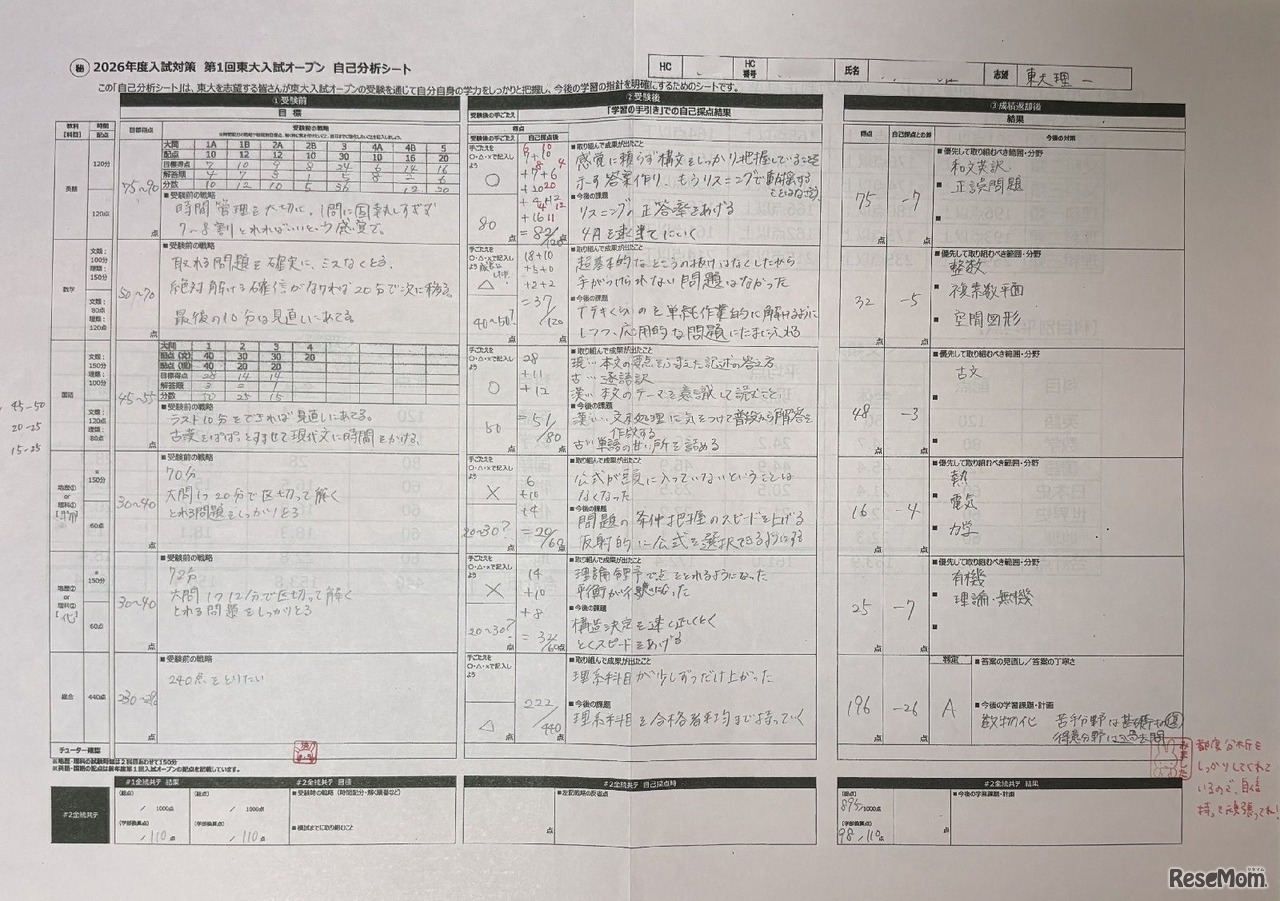 ㊙ 2026年度入試対策 第1回東大入試オープン 自己分析シート
HC
HC番号
氏名
志望 東大理一
この「自己分析シート」は、東大を志望する皆さんが東大入試オープンの受験を通じて自分自身の学力をしっかりと把握し、今後の学習の指針を明確にするためのシートです。
①受験前
目標
教科【科目】
時間 配点
目標得点
受験前の戦略
英語
120分
120点
75~90点
大問 1A 1B 2A 2B 3 4A 4B 5
配点 10 12 10 10 30 10 16 20
目標得点
解答順
分数
■受験前の戦略
時間管理を大切に。1問に固執しすぎず
7~8割とれればいいという感覚で。
数学
文類：100分
理類：150分
文類：80点
理類：120点
50~70点
■受験前の戦略
取れる問題を確実に、ミスなくとる。
絶対解ける確信がなければ20分で次に移る。
最後の10分は見直しにあてる。
国語
文類：150分
理類：100分
文類：120点
理類：80点
45~55点
大問 1 2 3 4
配点(文) 40 30 30 20
配点(理) 40 20 20
目標得点 28 14 14
解答順
分数 50 25 15
■受験前の戦略
ラスト10分をできれば見直しにあてる。
古漢をぱぱっとすませて現代文に時間をかける。
45-50
20-25
15-25
地歴① or 理科①
※150分
60点
30~40点
■受験前の戦略
70分
大問1つ20分で区切って解く
とれる問題をしっかりとる
地歴② or 理科②
※150分
60点
30~40点
■受験前の戦略
72分
大問1つ12分で区切って解く
とれる問題をしっかりとる
総合
440点
■受験前の戦略
240点をとりたい
チューター確認
※地歴・理科の試験時間は2科目あわせて150分
※英語・国語の配点は前年度第1回入試オープンの配点を記載しています。
②受験後
受験後の手ごたえ
「学習の手引き」での自己採点結果
得点
受験後の手ごたえ
自己採点後
手ごたえを○・△・×で記入しよう
○
80点
=82/120
■取り組んで成果が出たこと
感覚に頼らず構文をしっかり把握していることを
示す答案作り、もうリスニングで動揺する
ことはなさそう
■今後の課題
リスニングの正答率をあげる
4Aを速攻でにいく
△
40~50?点
18+10
+5+0
+2+2
=37/120
■取り組んで成果が出たこと
超基本的なところの抜けはなくしたから
手がつけられない問題はなかった
■今後の課題
プラチカくらいのを単純作業的に解けるように
しつつ、応用的な問題にたまにふれる
手ごたえを○・△・×で記入しよう
○
50点
28
+11
+12
=51/80
■取り組んで成果が出たこと
現… 本文の要点をふまえた記述の答え方
古… 逐語訳
漢… 本文のテーマを意識して読むこと
■今後の課題
漢… 文末処理に気をつけて普段から解答を
作成する
古… 単語の甘い所を詰める
手ごたえを○・△・×で記入しよう
×
20~30?点
6
+10
+4
=20/60
■取り組んで成果が出たこと
公式が頭に入っていないということは
なくなった
■今後の課題
問題の条件把握のスピードを上げる
反射的に公式を選択できるようにする
手ごたえを○・△・×で記入しよう
×
20~30?点
14
+10
+8
=32/60
■取り組んで成果が出たこと
理論分野で点をとれるようになった
■今後の課題
構造決定を速く正しくとく
とくスピードをあげる
手ごたえを○・△・×で記入しよう
△
222/440
■取り組んで成果が出たこと
理系科目が少しずつだけ上がった
■今後の課題
理系科目を合格者平均まで持っていく
③成績返却後
結果
得点
自己採点との差
今後の対策
75点 -7点
■優先して取り組むべき範囲・分野
和文英訳
■正誤問題
32点 -5点
■優先して取り組むべき範囲・分野
整数
■複素数平面
■空間図形
48点 -3点
■優先して取り組むべき範囲・分野
古文
16点 -4点
■優先して取り組むべき範囲・分野
熱
■電気
■力学
25点 -7点
■優先して取り組むべき範囲・分野
有機
■理論・無機
196点 -26点
判定
A
■答案の見直し／答案の丁寧さ
■今後の学習課題・計画
数物化 苦手分野は基礎
得意分野は過去問
みました
都度分析を
しっかりしてくれて
いるので、自信
持って頑張ってね!
#2全統共テ
#1全統共テ 結果
#2全統共テ 目標
(総点) / 1000点
(総点) / 1000点
(学部換算点) /110点
(学部換算点) /110点
■受験時の戦略（時間配分・解く順番など）
■模試までに取り組むこと
#2全統共テ 自己採点時
点
■左記戦略の反省点
#2全統共テ 結果
(総点) 895/1000点
(学部換算点) 98/110点
■今後の学習課題・計画
ReseMom.